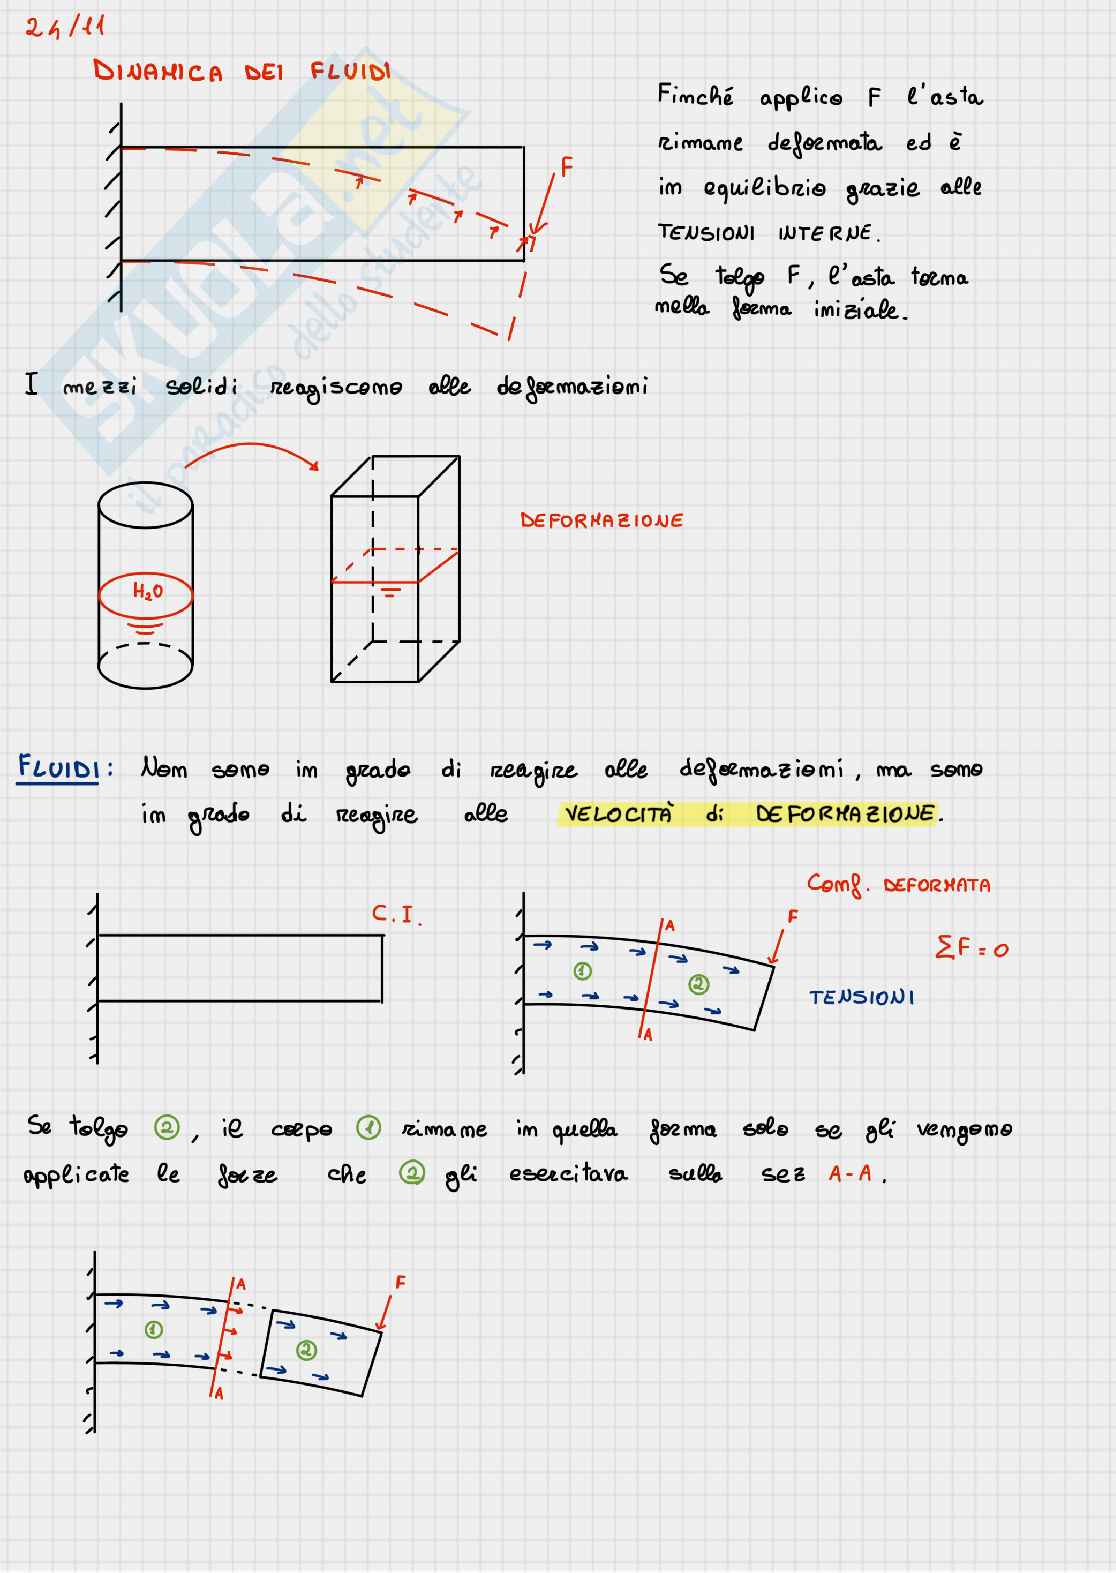 24/11
DINAMICA DEI FLUIDI
Finché applico F l'asta
rimane deformata ed è
in equilibrio grazie alle
TENSIONI INTERNE.
Se tolgo F, l'asta torna
nella forma iniziale.
F
SKUOLA.net
il paradiso dello studente
I mezzi solidi reagiscono alle deformazioni
H₂O
DEFORMAZIONE
FLUIDI: Non sono in grado di reagire alle deformazioni, ma sono
in grado di reagire alle VELOCITÀ di DEFORMAZIONE.
C.I.
Conf. DEFORMATA
A
F
ΣF = 0
1
2
TENSIONI
A
Se tolgo 2, il corpo 1 rimane in quella forma solo se gli vengono
applicate le forze che 2 gli esercitava sulla sez A-A.
A
F
1
2
A